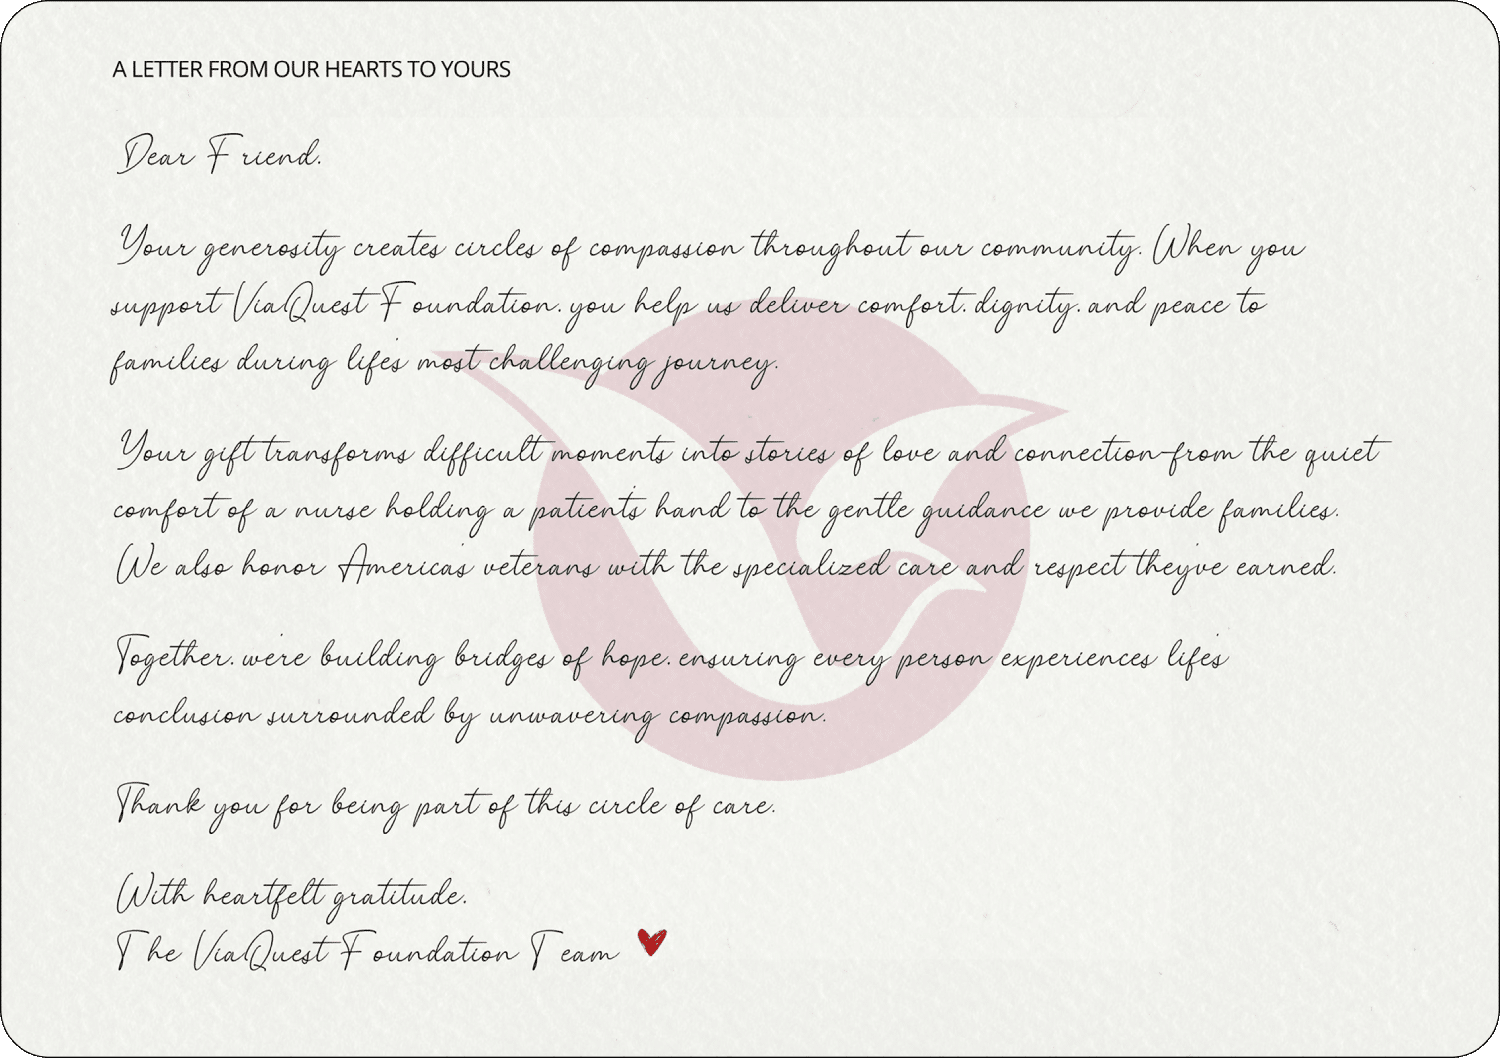 A LETTER FROM OUR HEARTS TO YOURS
Dear Friend,
Your generosity creates circles of compassion throughout our community. When you
support ViaQuest Foundation, you help us deliver comfort, dignity, and peace to
families during life's most challenging journey.
Your gift transforms difficult moments into stories of love and connection—from the quiet
comfort of a nurse holding a patient's hand to the gentle guidance we provide families.
We also honor America's veterans with the specialized care and respect they've earned.
Together, we're building bridges of hope, ensuring every person experiences life's
conclusion surrounded by unwavering compassion.
Thank you for being part of this circle of care.
With heartfelt gratitude,
The ViaQuest Foundation Team